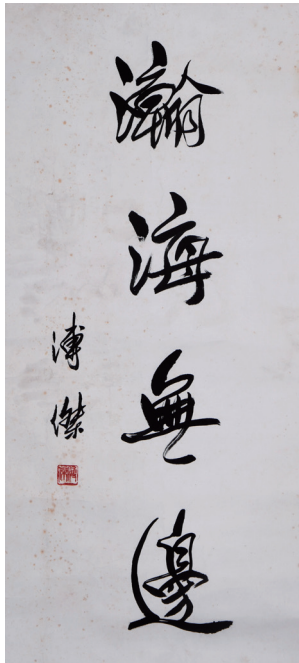 瀚海無邊
溥傑